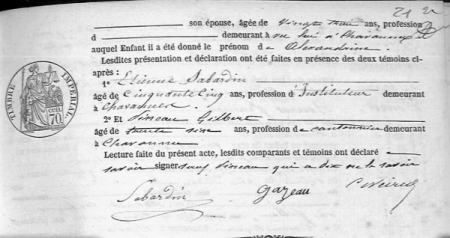 21
son épouse, âgée de vingt trois ans, profession
d demeurant à
auquel Enfant il a été donné le prénom de Alexandrine.
Lesdites présentation et déclaration ont été faites en présence des deux témoins ci-
après :
1° Étienne Sabardin
âgé de Cinquante Cinq ans, profession d'Instituteur demeurant
à
2° Et Gilbert
âgé de trente six ans, profession de cantonnier demeurant
à
Lecture faite du présent acte, lesdits comparants et témoins ont déclaré
savoir signer sauf qui a dit ne le savoir
Sabardin Gazeau
TIMBRE IMPÉRIAL
70